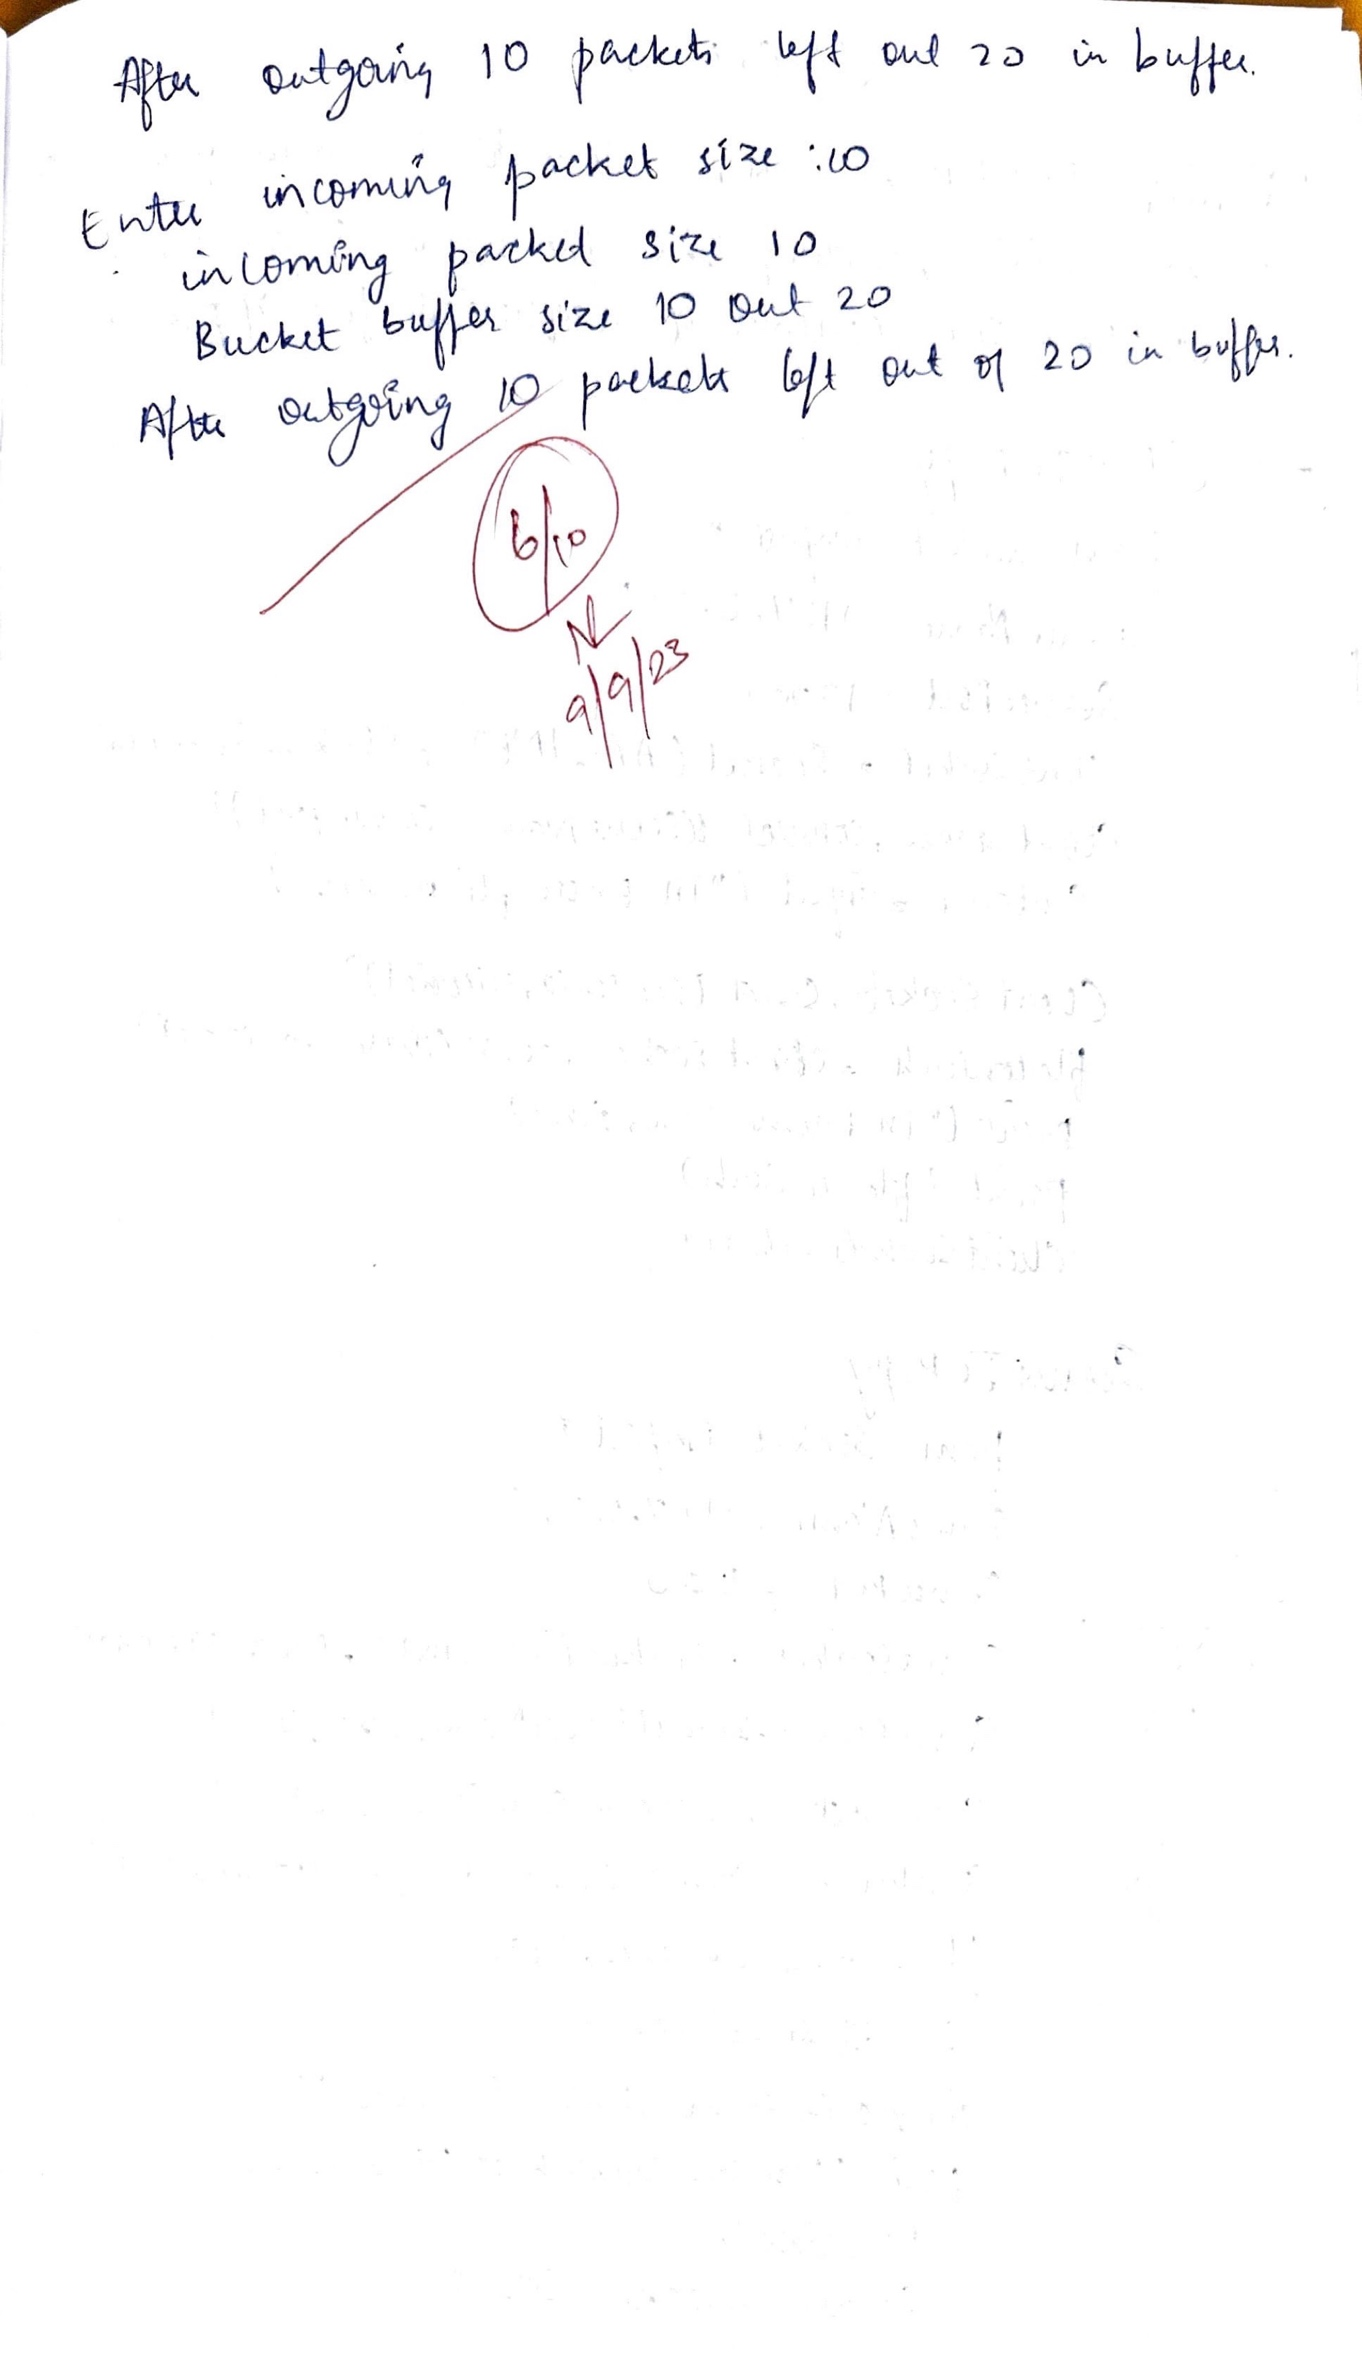 After outgoing 10 packets left out 20 in buffer.
Enter incoming packet size :10
incoming packed size 10
Bucket buffer size 10 out 20
After outgoing 10 packets left out of 20 in buffer.
6/10
9/9/23